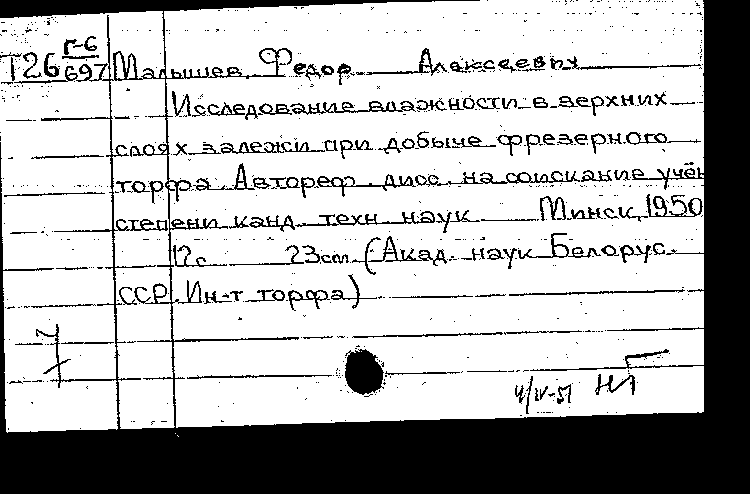 Т26 Г-6
697 Малышев, Федор Алексеевич
Исследование влажности в верхних
слоях залежи при добыче фрезерного
торфа. Автореф. дисс. на соискание учён
степени канд. техн. наук. Минск, 1950
12с 23см. (Акад. наук Белорус.
ССР. Ин-т торфа)
7
4/IV-51 НГ